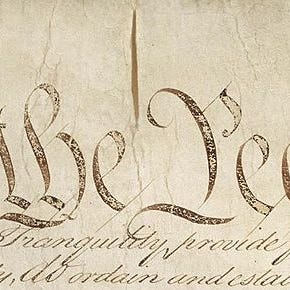 the Peo
Tranquility, provide f
y, do ordain and estab